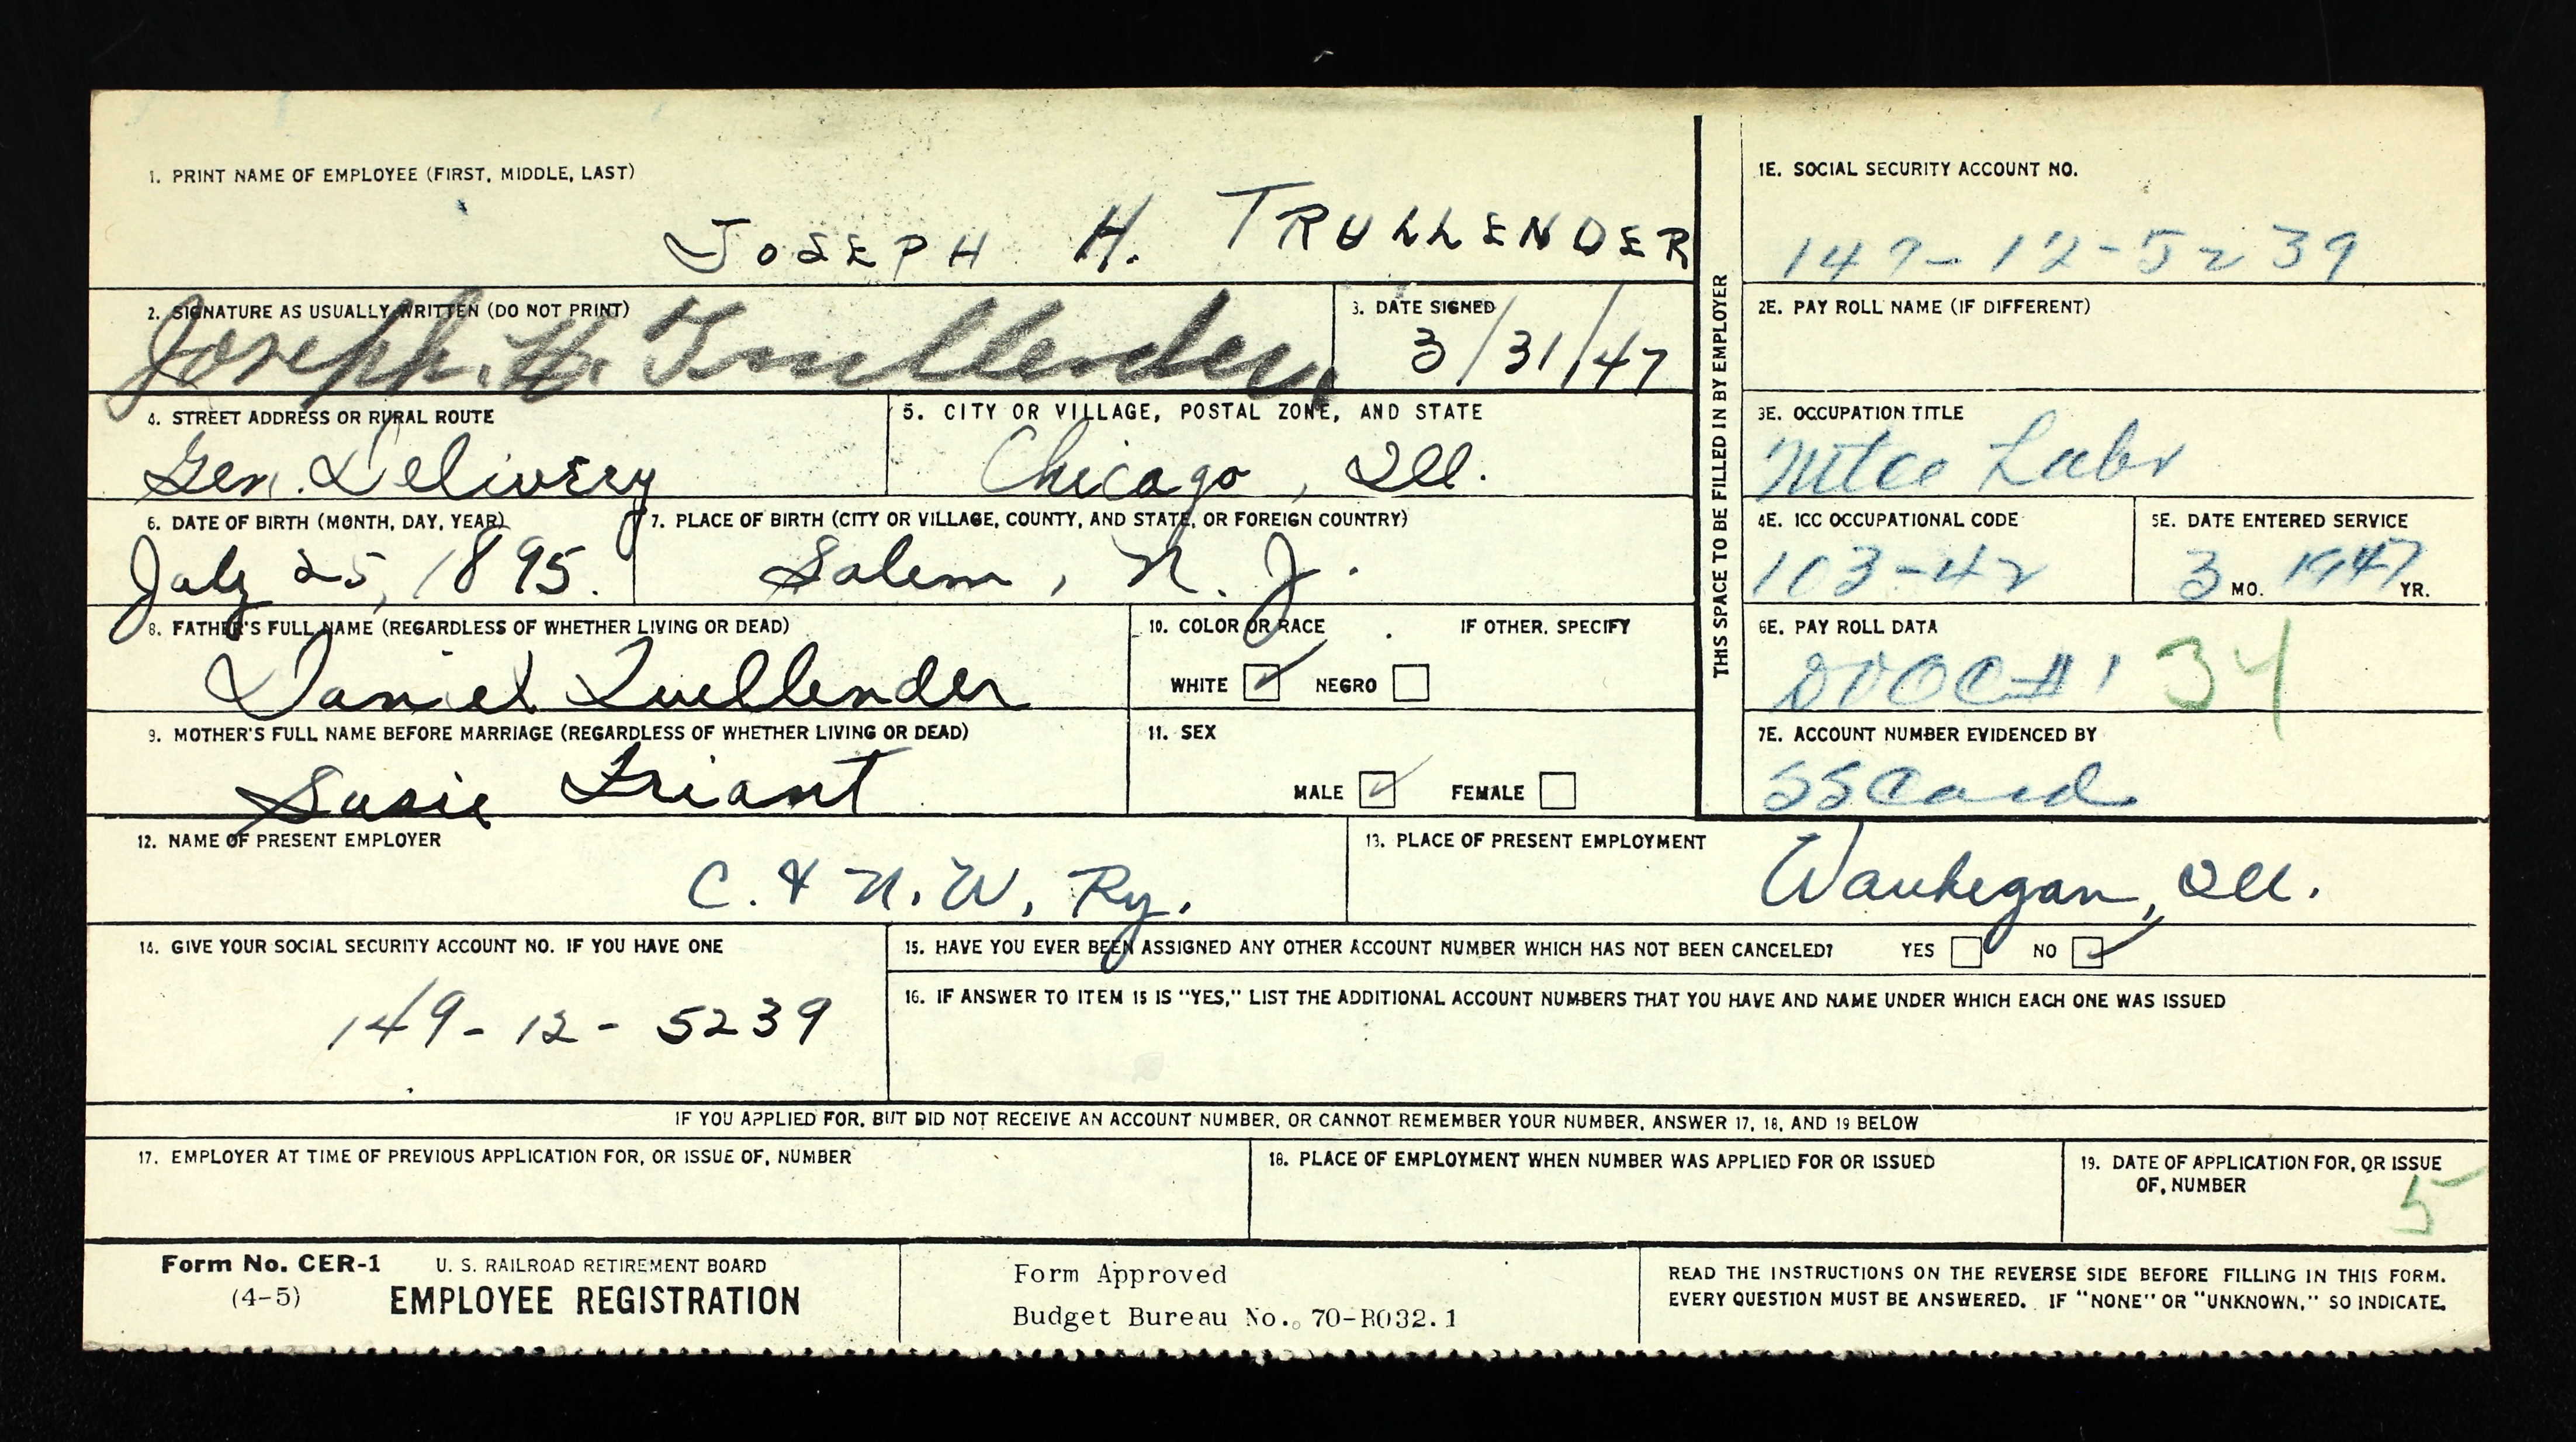 1. PRINT NAME OF EMPLOYEE (FIRST, MIDDLE, LAST)
JOSEPH H. TRULLENDER
2. SIGNATURE AS USUALLY WRITTEN (DO NOT PRINT)
Joseph. H. Trullender.
3. DATE SIGNED
3/31/47
4. STREET ADDRESS OR RURAL ROUTE
Gen. Delivery
5. CITY OR VILLAGE, POSTAL ZONE, AND STATE
Chicago, Ill.
6. DATE OF BIRTH (MONTH, DAY, YEAR)
July 25, 1895.
7. PLACE OF BIRTH (CITY OR VILLAGE, COUNTY, AND STATE, OR FOREIGN COUNTRY)
Salem, N. J.
8. FATHER'S FULL NAME (REGARDLESS OF WHETHER LIVING OR DEAD)
Daniel
10. COLOR OR RACE IF OTHER, SPECIFY
WHITE ✓ NEGRO
9. MOTHER'S FULL NAME BEFORE MARRIAGE (REGARDLESS OF WHETHER LIVING OR DEAD)
Susie Friant
11. SEX
MALE ✓ FEMALE
THIS SPACE TO BE FILLED IN BY EMPLOYER
1E. SOCIAL SECURITY ACCOUNT NO.
149-12-5239
2E. PAY ROLL NAME (IF DIFFERENT)
3E. OCCUPATION TITLE
Mtce Labr
4E. ICC OCCUPATIONAL CODE
103-42
5E. DATE ENTERED SERVICE
3 MO. 1947 YR.
6E. PAY ROLL DATA
34
7E. ACCOUNT NUMBER EVIDENCED BY
SS Card
12. NAME OF PRESENT EMPLOYER
C. & N. W. Ry.
13. PLACE OF PRESENT EMPLOYMENT
Waukegan, Ill.
14. GIVE YOUR SOCIAL SECURITY ACCOUNT NO. IF YOU HAVE ONE
149-12-5239
15. HAVE YOU EVER BEEN ASSIGNED ANY OTHER ACCOUNT NUMBER WHICH HAS NOT BEEN CANCELED? YES NO ✓
16. IF ANSWER TO ITEM 15 IS "YES," LIST THE ADDITIONAL ACCOUNT NUMBERS THAT YOU HAVE AND NAME UNDER WHICH EACH ONE WAS ISSUED
IF YOU APPLIED FOR, BUT DID NOT RECEIVE AN ACCOUNT NUMBER, OR CANNOT REMEMBER YOUR NUMBER, ANSWER 17, 18, AND 19 BELOW
17. EMPLOYER AT TIME OF PREVIOUS APPLICATION FOR, OR ISSUE OF, NUMBER
18. PLACE OF EMPLOYMENT WHEN NUMBER WAS APPLIED FOR OR ISSUED
19. DATE OF APPLICATION FOR, OR ISSUE
OF, NUMBER
5
Form No. CER-1
(4-5)
U. S. RAILROAD RETIREMENT BOARD
EMPLOYEE REGISTRATION
Form Approved
Budget Bureau No. 70-R032.1
READ THE INSTRUCTIONS ON THE REVERSE SIDE BEFORE FILLING IN THIS FORM.
EVERY QUESTION MUST BE ANSWERED. IF "NONE" OR "UNKNOWN," SO INDICATE.